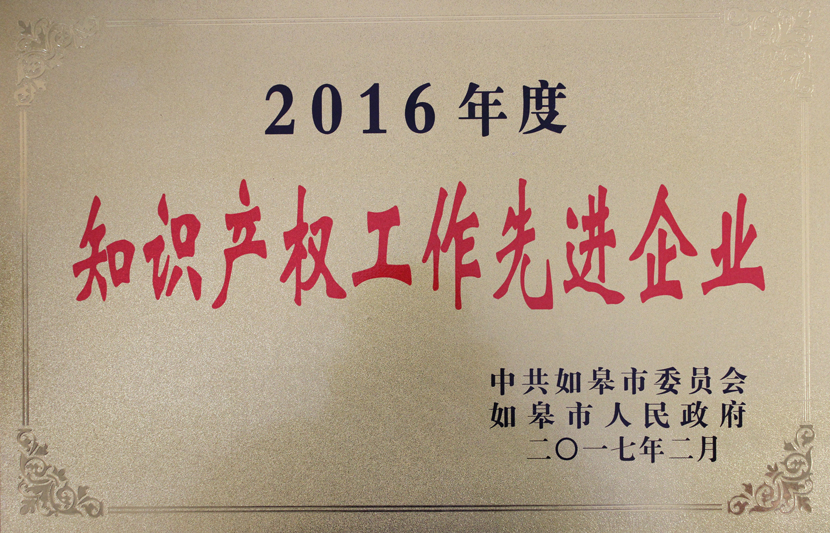 2016年度
知识产权工作先进企业
中共如皋市委员会
如皋市人民政府
二〇一七年二月